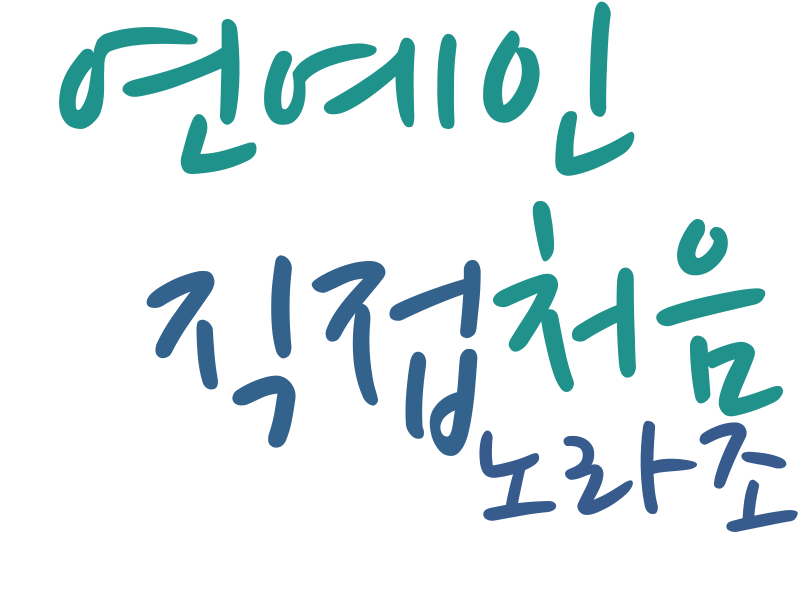 연예인
직접처음
노라조